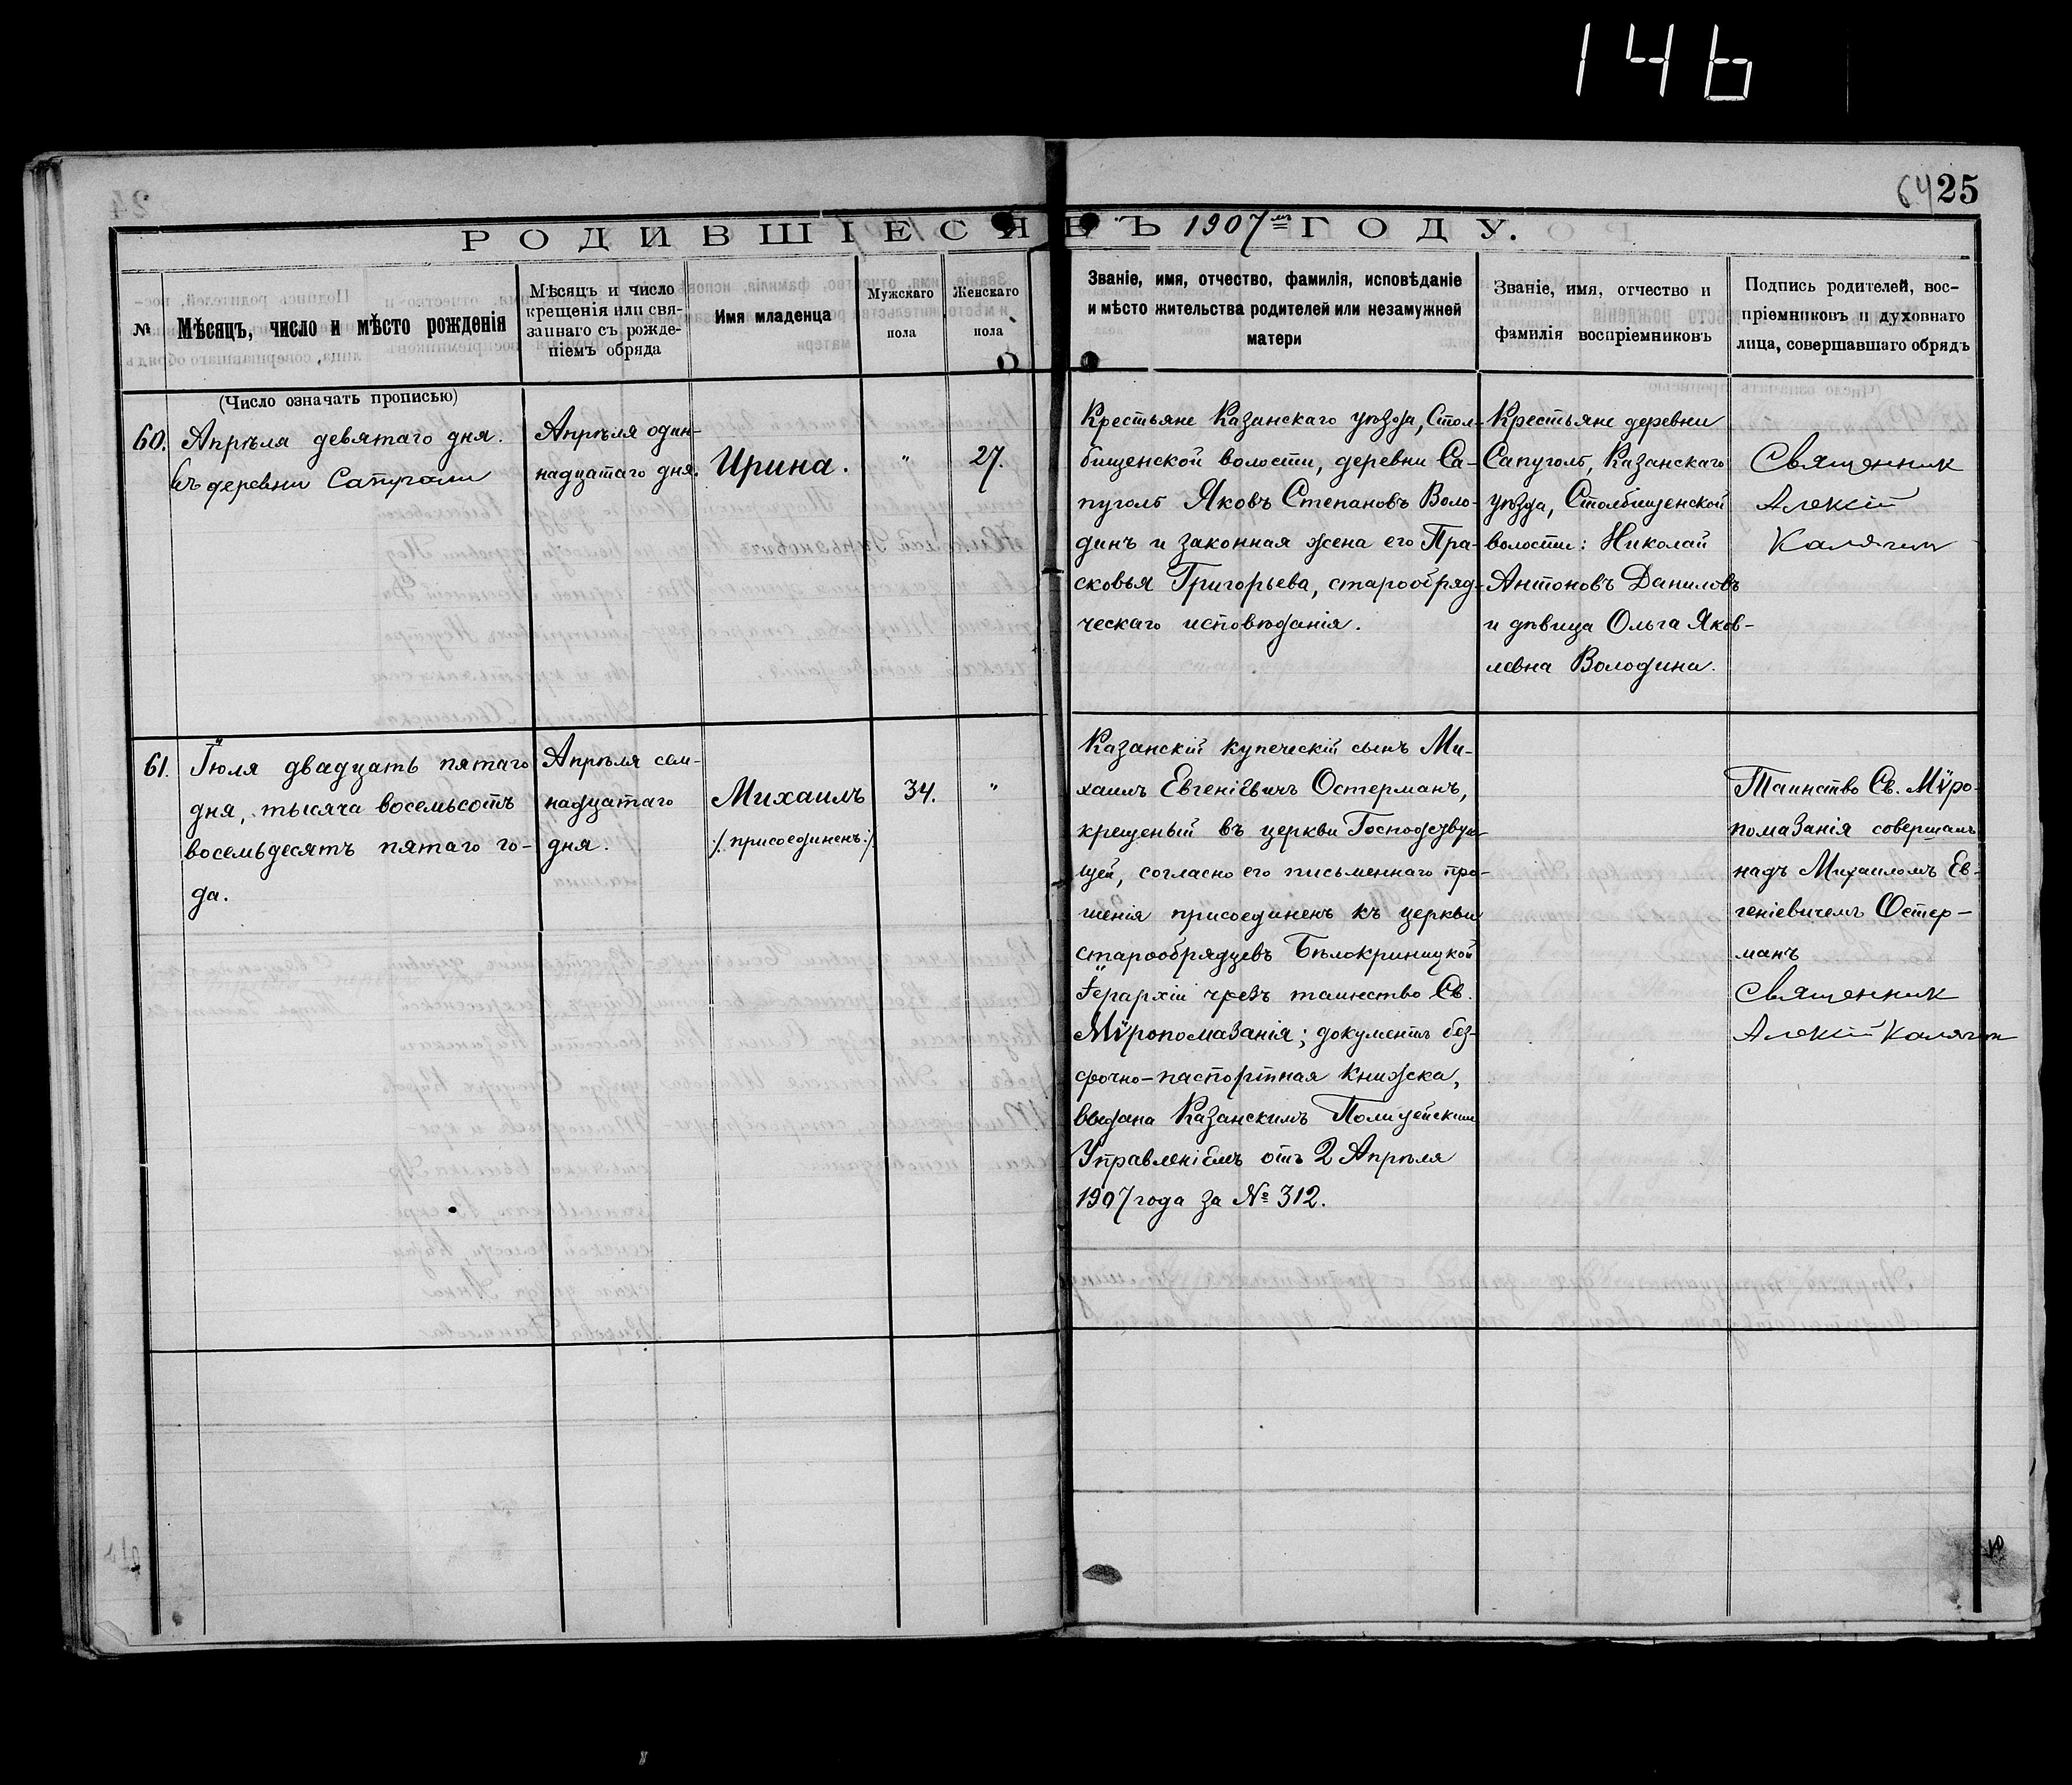 146
64 25
РОДИВШІЕСЯ ВЪ 1907 мъ ГОДУ.
№
Мѣсяцъ, число и мѣсто рожденія
Мѣсяцъ и число
крещенія или свя-
заннаго съ рожде-
ніемъ обряда
Имя младенца
Мужскаго
пола
Женскаго
пола
Званіе, имя, отчество, фамилія, исповѣданіе
и мѣсто жительства родителей или незамужней
матери
Званіе, имя, отчество и
фамилія воспріемниковъ
Подпись родителей, вос-
пріемниковъ и духовнаго
лица, совершавшаго обрядъ
(Число означать прописью)
60.
Апрѣля девятаго дня.
въ деревни Сапуголи
Апрѣля один-
надцатаго дня.
Ирина.
"
27.
Крестьяне Казанскаго уѣзда, Стол-
бищенской волости, деревни Са-
пуголь Яковъ Степановъ Воло-
динъ и законная жена его Пра-
сковья Григорьева, старообряд-
ческаго исповѣданія.
Крестьяне деревни
Сапуголь, Казанскаго
уѣзда, Столбищенской
волости: Николай
Антоновъ Даниловъ
и дѣвица Ольга Яков-
левна Володина.
Священник
Алексій
Калягин
61.
Іюля двадцать пятаго
дня, тысяча восемьсотъ
восемьдесятъ пятаго го-
да.
Апрѣля сем-
надцатаго
дня.
Михаилъ
/: присоединенъ :/
34.
"
Казанскій купеческій сынъ Ми-
хаилъ Евгеніевичъ Остерманъ,
крещеный въ церкви Господствую-
щей, согласно его письменнаго про-
шенія присоединенъ къ церкви
старообрядцевъ Бѣлокриницкой
Іерархіи чрезъ таинство Св.
Мѵропомазанія; документъ без-
срочно-паспортная книжка,
выдана Казанскимъ Полицейским
Управленіемъ отъ 2 Апрѣля
1907 года за № 312.
Таинство Св. Мѵро-
помазанія совершалъ
надъ Михаиломъ Ев-
геніевичемъ Остер-
манъ
Священник
Алексій Калягин